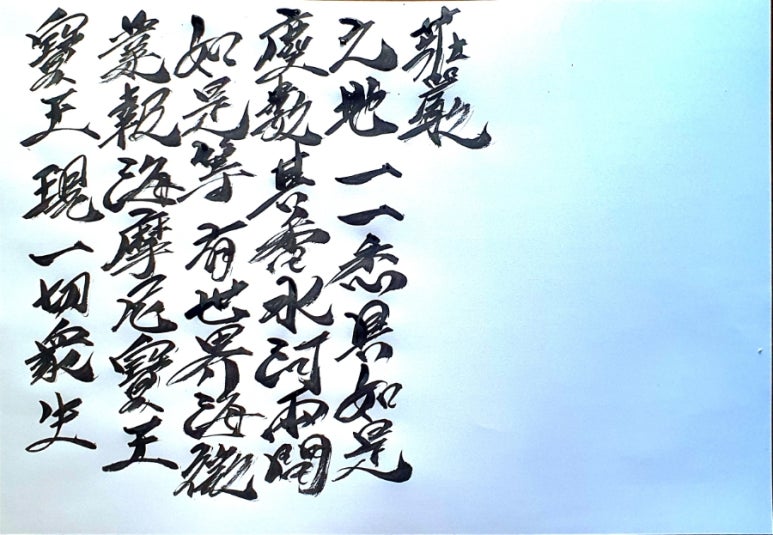 寶王現一切眾生
業報海摩尼寶王
如是等有世界海微
塵數其香水河兩間
之地一一悉具如是
莊嚴